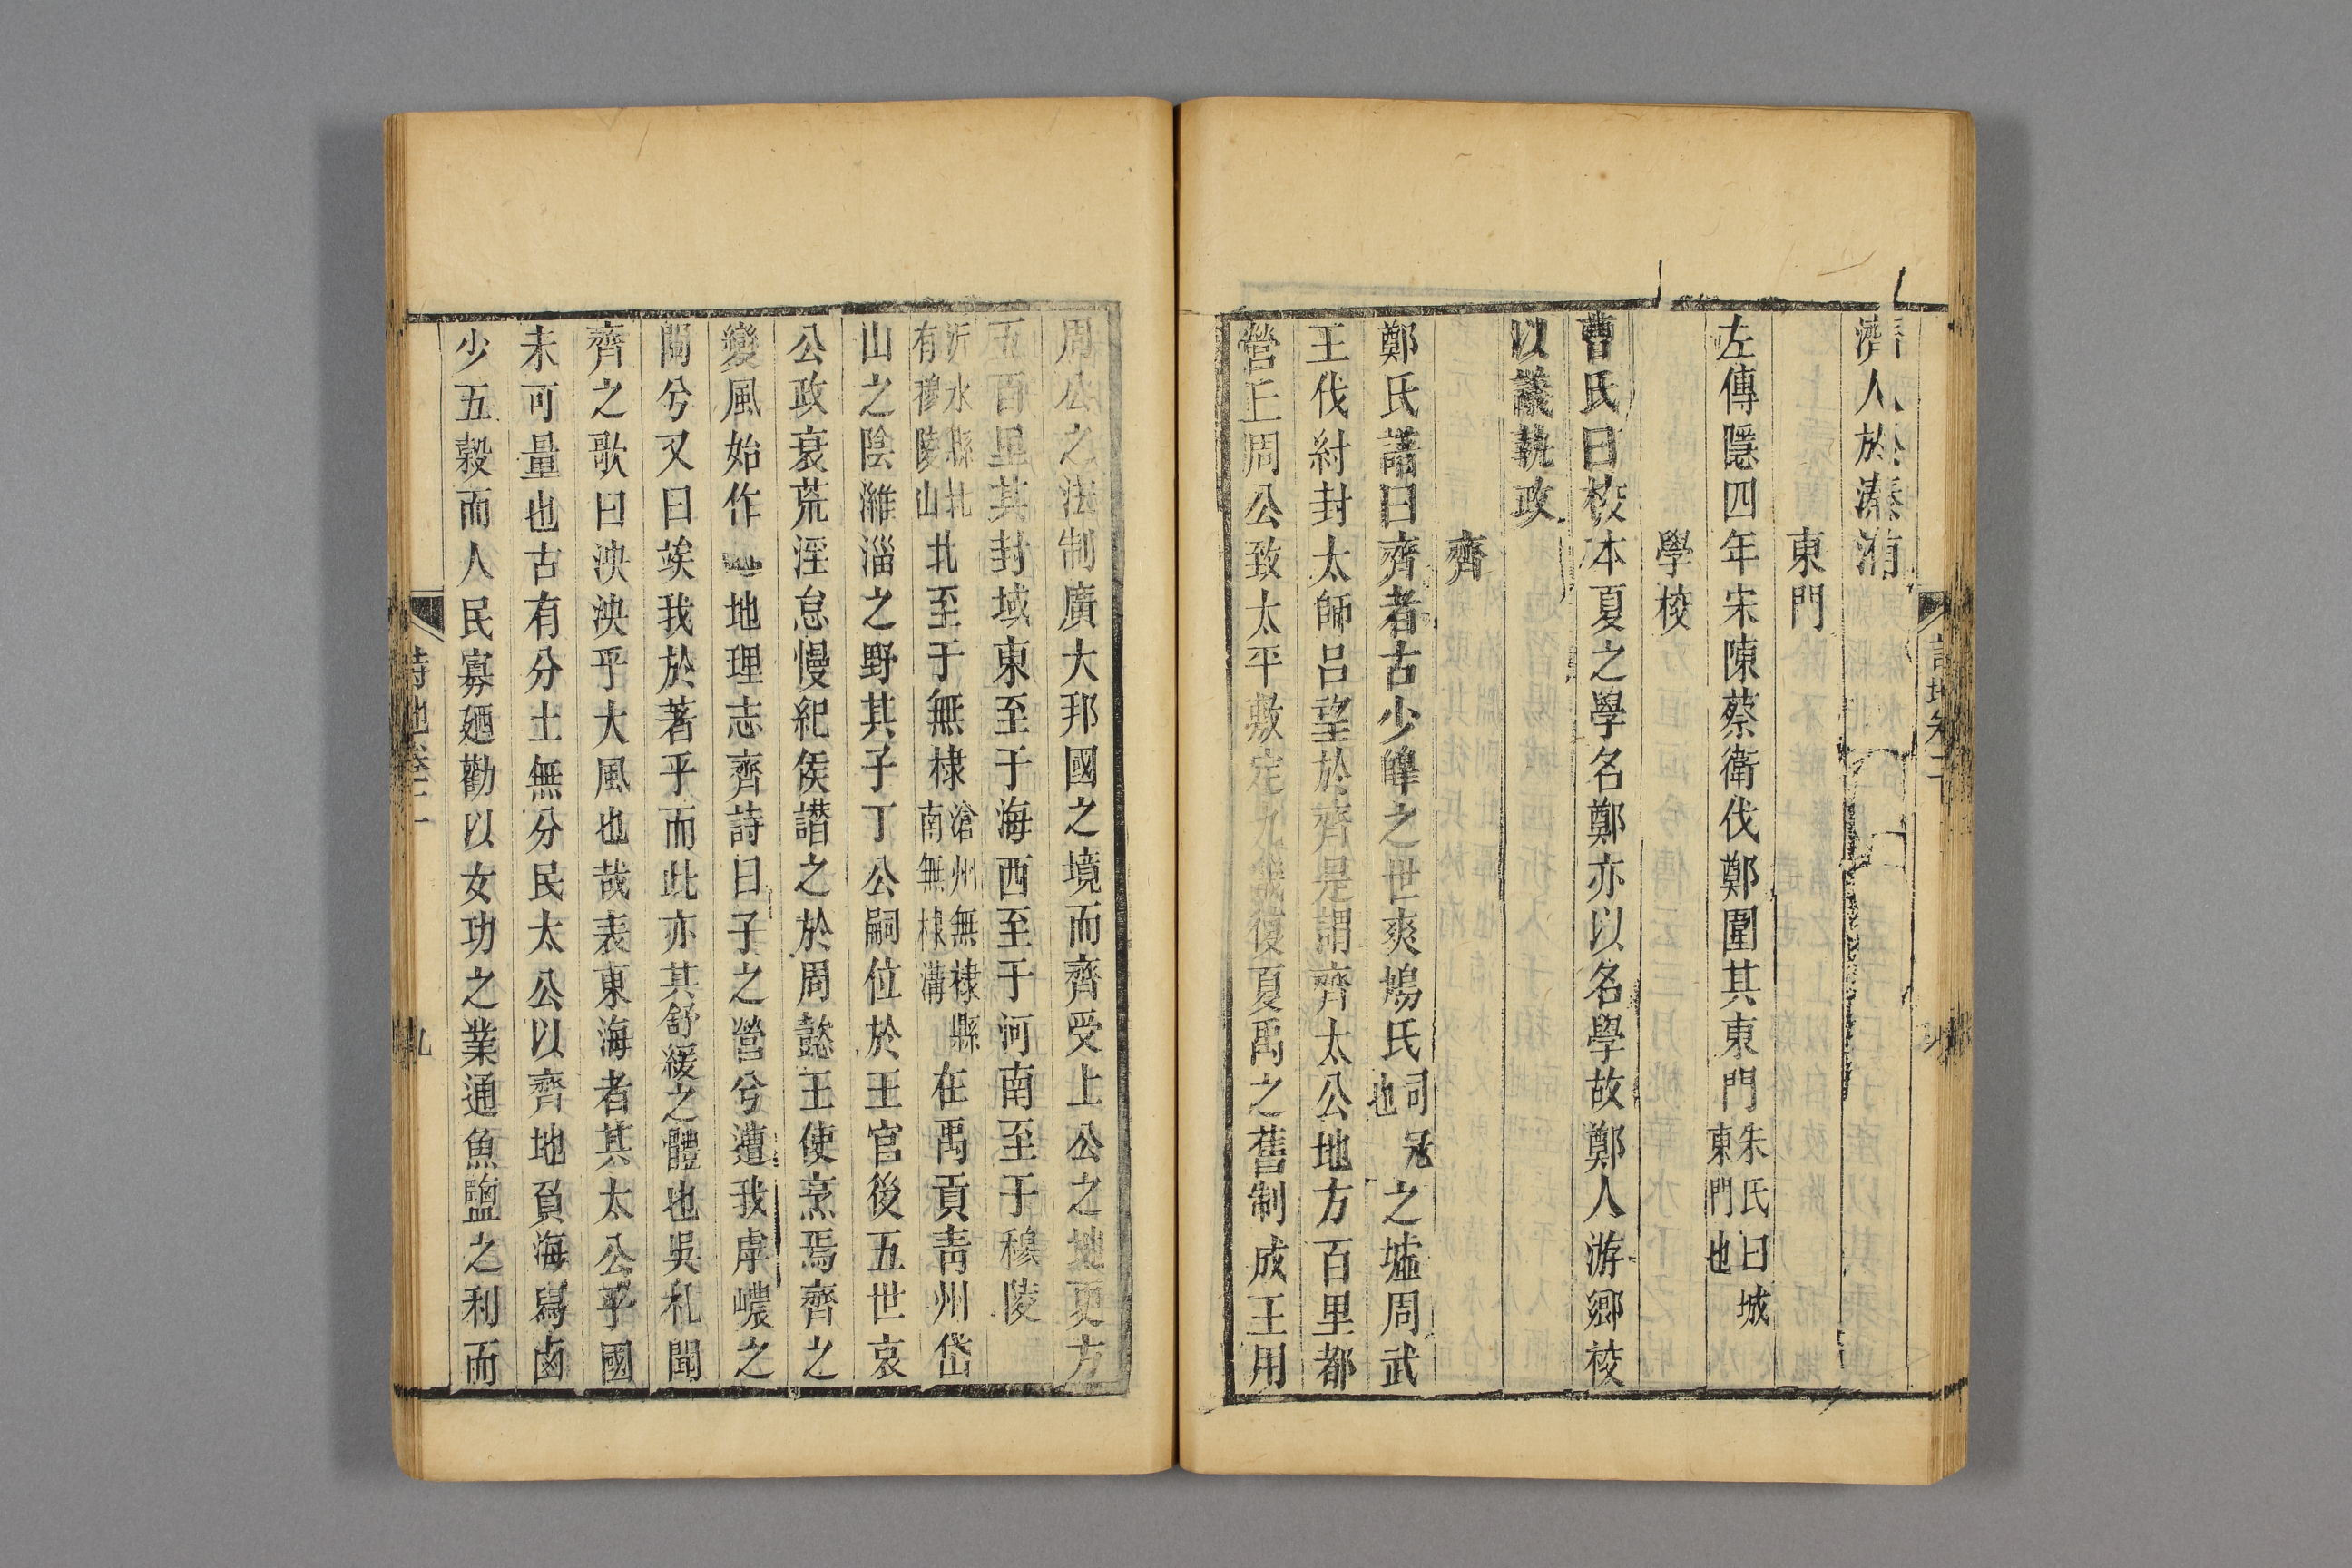 濟人於溱洧
東門
左傳隱四年宋陳蔡衛伐鄭圍其東門朱氏曰城東門也
學校
曹氏曰校本夏之學名鄭亦以名學故鄭人游鄉校
以議執政
齊
鄭氏譜曰齊者古少皥之世爽鳩氏司冦也之墟周武
王伐紂封太師呂望於齊是謂齊太公地方百里都
營丘周公致太平敷定九畿復夏禹之舊制成王用
周公之法制廣大邦國之境而齊受上公之地更方
五百里其封域東至于海西至于河南至于穆陵
沂水縣北有穆陵山北至于無棣滄州無棣縣南無棣溝在禹貢靑州岱
山之陰濰淄之野其子丁公嗣位於王官後五世哀
公政衰荒淫怠慢紀侯譖之於周懿王使烹焉齊之
變風始作地理志齊詩曰子之營兮遭我虖嶩之
閒兮又曰竢我於著乎而此亦其舒緩之體也吳札聞
齊之歌曰泱泱乎大風也哉表東海者其太公乎國
未可量也古有分土無分民太公以齊地負海舄鹵
少五穀而人民寡廼勸以女功之業通魚鹽之利而
詩地卷二
九